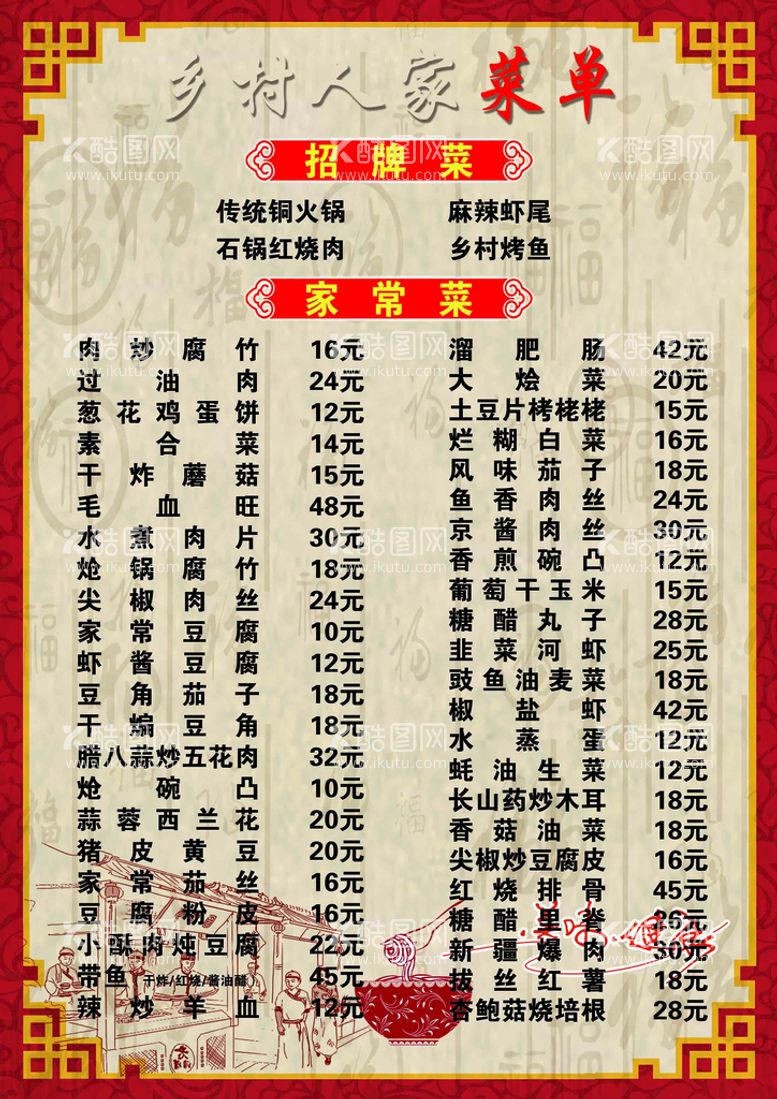 乡村人家菜单
招牌菜
传统铜火锅 麻辣虾尾
石锅红烧肉 乡村烤鱼
家常菜
肉炒腐竹 16元
过油肉 24元
葱花鸡蛋饼 12元
素合菜 14元
干炸蘑菇 15元
毛血旺 48元
水煮肉片 30元
炝锅腐竹 18元
尖椒肉丝 24元
家常豆腐 10元
虾酱豆腐 12元
豆角茄子 18元
干煸豆角 18元
腊八蒜炒五花肉 32元
炝碗凸 10元
蒜蓉西兰花 20元
猪皮黄豆 20元
家常茄丝 16元
豆腐粉皮 16元
小酥肉炖豆腐 22元
带鱼 干炸/红烧/酱油醋 45元
辣炒羊血 12元
溜肥肠 42元
大烩菜 20元
土豆片栲栳栳 15元
烂糊白菜 16元
风味茄子 18元
鱼香肉丝 24元
京酱肉丝 30元
香煎碗凸 12元
葡萄干玉米 15元
糖醋丸子 28元
韭菜河虾 25元
豉鱼油麦菜 18元
椒盐虾 42元
水蒸蛋 12元
蚝油生菜 12元
长山药炒木耳 18元
香菇油菜 18元
尖椒炒豆腐皮 16元
红烧排骨 45元
糖醋里脊 26元
新疆爆肉 30元
拔丝红薯 18元
杏鲍菇烧培根 28元
酷图网
www.ikutu.com